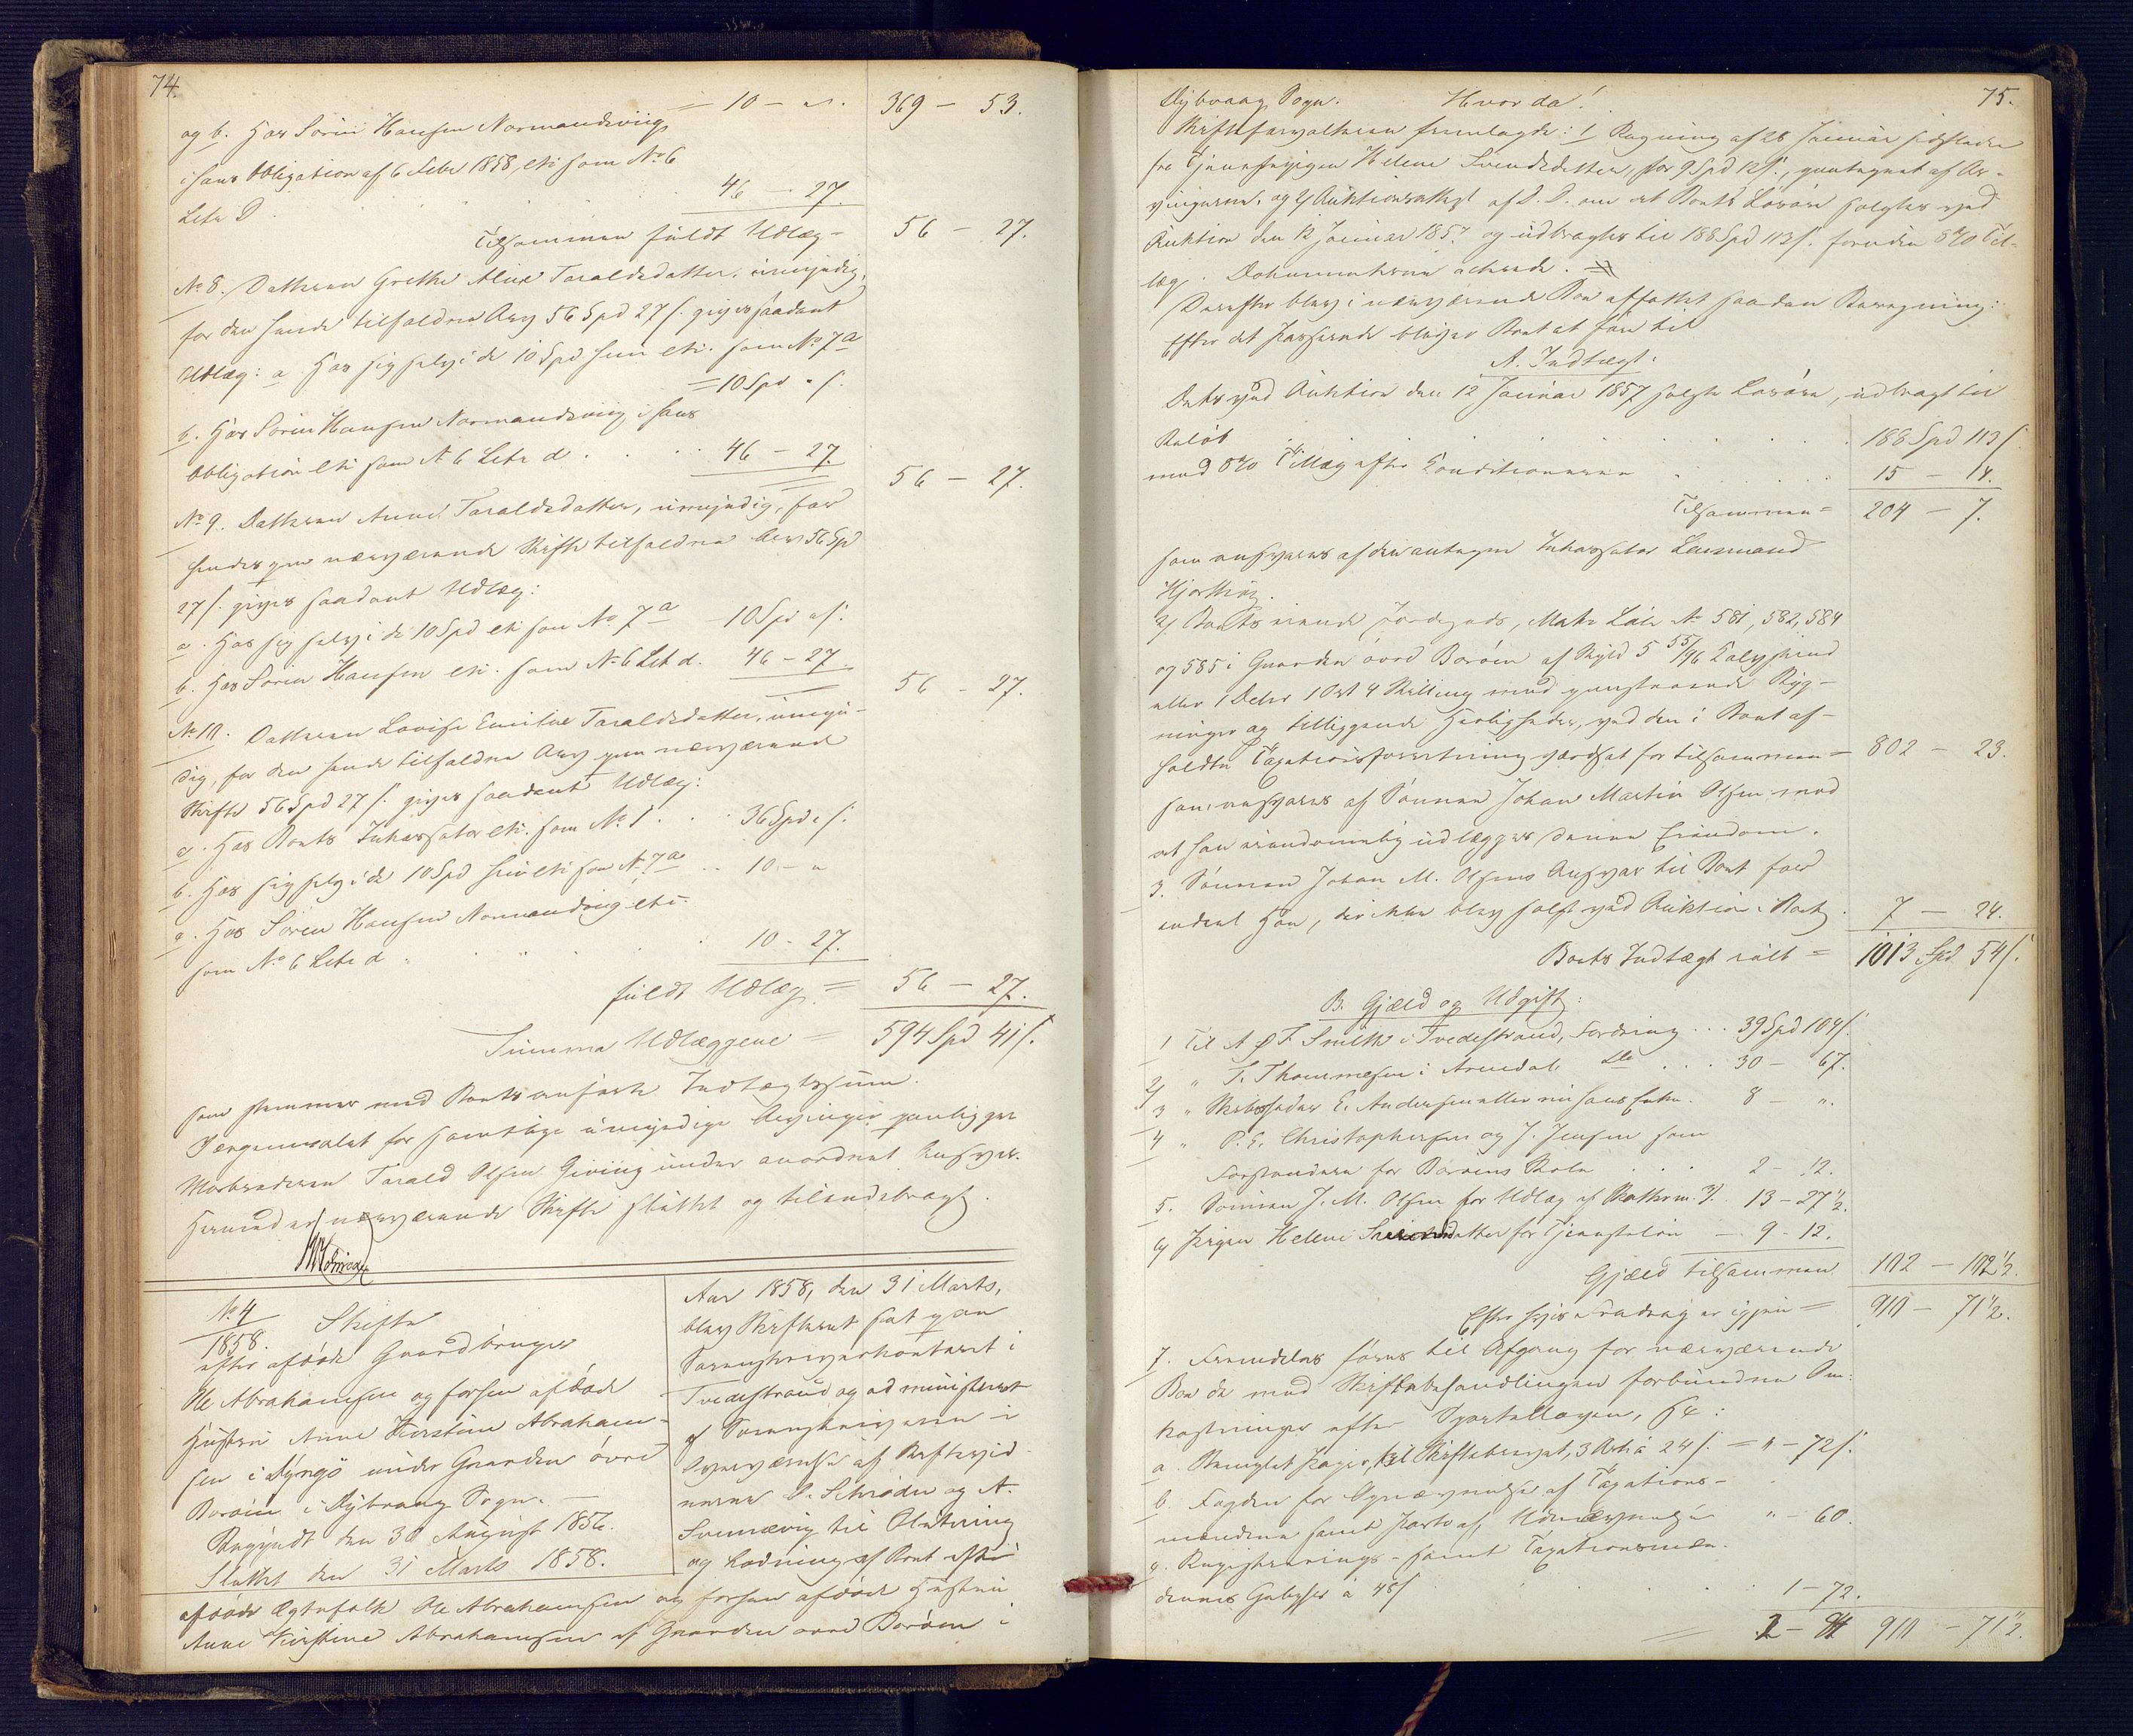 74.
og b. Hos Sørin Hansen Normandsviig = 10 - „ . 369 - 53.
i hans Obligation af 6 Febr 1858, etc som No 6
Letr D . . . . 46 - 27.
Tilsammen fuldt Udlæg - 56 - 27.
No 8. Datteren Grethe Aline Taraldsdatter, umyndig,
for den hende tilfaldne Arv 56 Spd 27 s. gives saadant
Udlæg: a Hos sig selv i de 10 Spd hun etc. som No 7 a
= 10 Spd „ s.
b. Hos Sørin Hansen Normandsviig i hans
Obligation etc som N 6 Letr d . . . 46 - 27. 56 - 27.
No 9. Datteren Anne Taraldsdatter, umyndig, for
hendes ved nærværende Skifte tilfaldne Arv 56 Spd
27 s. gives saadant Udlæg:
a. Hos sig selv i de 10 Spd etc som No 7 a - 10 Spd „ s.
b. Hos Sørin Hansen etc. som No 6 Let d. 46 - 27 56 - 27.
No 10. Datteren Lovise Emilie Taraldsdatter, umyn-
dig, for den hende tilfaldne Arv ved nærværende
Skifte 56 Spd 27 s. gives saadant Udlæg:
a. Hos Boets Inkassator etc. som No 1 . . 36 Spd „ s.
b. Hos sig selv i de 10 Spd hun etc som N 7 a . . 10 - „
c. Hos Sørin Hansen Normandsviig etc
som No 6 Letr d . . . . 10 - 27.
fuldt Udlæg = 56 - 27.
Summa Udlæggene = 594 Spd 41 s.
som stemmer med Boets anførte Indtægtssum.
Værgemaalet for samtlige umyndige Arvinger paaligger
Morbroderen Tarald Olsen Giviig under anordnet Ansvar.
Hermed er nærværende Skifte sluttet og tilendebragt.
No 4
1858. Skifte
efter afdøde Gaardbruger
Ole Abrahamsen og forhen afdøde
Hustru Anne Kirstine Abraham-
sen i Lyngø under Gaarden øvre
Borøen i Dybvaag Sogn. -
Begyndt den 30 August 1856.
Sluttet den 31 Marts 1858.
Aar 1858, den 31 Marts,
blev Skifteret sat paa
Sorenskriverkontoret i
Tvedestrand og administreret
af Sorenskriveren i
Overværelse af Skiftevid-
nerne O. Schrøder og A.
Svennevig til Slutning
og Lodning af Boet efter
afdøde Ægtefolk Ole Abrahamsen og forhen afdøde Hustru
Anne Kirstine Abrahamsen af Gaarden øvre Borøen i
75.
Dybvaag Sogn. Hvorda!
Skifteforvalteren fremlagde: 1) Regning af 28 Januar sidstleden
fra Tjenestepigen Helene Svendsdatter, stor 9 Spd 12 s., vedtegnet af Ar-
vingerne, og 2) Auktionsattest af D. D. om at Boets Løsøre solgtes ved
Auktion den 12 Januar 1857 og udbragtes til 188 Spd 113 s. foruden 8% Til-
læg. Dokumenterne acteredes.
Derefter blev i nærværende Boe affattet saadan Beregning:
Efter det Passerede bliver Boet at føre til
A. Indtægt:
Dets ved Auktion den 12 Januar 1857 solgte Løsøre, udbragt til
Beløb . . . . 188 Spd 113 s.
med 8% Tillæg efter Konditionerne . . . . 15 - 14.
Tilsammen = 204 - 7.
som ansvares af den antagne Inkassator Lensmand
Hjorthøg.
2) Boets eiende Jordegods, Matr Løbe N 581, 582, 584
og 585 i Gaarden øvre Borøen af Skyld 5 55/96 Kalvskind
eller 1 Daler 1 Ort 4 Skilling med paastaaende Byg-
ninger og tilliggende Herligheder, ved den i Boet af-
holdte Taxationsforretning værdsat for tilsammen = 802 - 23.
som ansvares af Sønnen Johan Martin Olsen mod
at han eiendommelig udlægges denne Eiendom.
3. Sønnen Johan M. Olsens Ansvar til Boet for
endeel Høe, der ikke blev solgt ved Auktion i Boet . 7 - 24.
Boets Indtægt ialt = 1013 Spd 54 s.
B. Gjæld og Udgift:
1 Til A & F Smith i Tvedestrand, Fordring . . . 39 Spd 104 s.
2) " T. Thommesen i Arendal do . . . 30 - 67.
3 " Skibsfører E. Andersen eller nu hans Enke. 8 - „.
4 " P. E. Christophersen og J. Jensen som
Forstandere for Borøens Skole . . . 2 - 12.
5. Sønnen J. M. Olsen for Udlæg af Skatter m. V. 13 - 27 1/2.
6) Pigen Helene Svendsdatter for Tjenesteløn - 9 - 12.
Gjæld tilsammen 102 - 102 1/2.
Efter hvis Fradrag er igjen = 910 - 71 1/2.
7. Fremdeles føres til Afgang for nærværende
Boe de med Skiftebehandlingen forbundne Om-
kostninger efter Sportelloven, H4:
a. Stemplet Papir, til Skiftebrevet, 3 Ark à 24 s. = „ - 72 s.
b. Fogden for Opnævnelse af Taxations-
mændene samt Porto af Udnævnelsen " - 60.
c. Registrerings- samt Taxationsmæn-
denes Gebyhr à 48 s . . . . 1 - 72.
910 - 71 1/2.